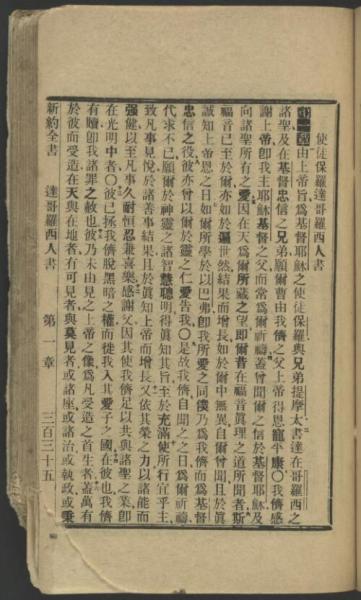 使徒保羅達哥羅西人書
第一章 由上帝旨爲基督耶穌之使徒保羅與兄弟提摩太書達在哥羅西之
諸聖及在基督忠信之兄弟願爾曹由我儕之父上帝得恩寵平康○我儕感
謝上帝卽我主耶穌基督之父而常爲爾祈禱蓋曾聞爾之信於基督耶穌及
向諸聖所有之愛因在天爲爾所藏之望卽爾昔在福音眞理之道所聞者斯
福音已至於爾亦如於遍世然結果而增長如於爾中無異自爾曾聞且於眞
誠知上帝恩之日如爾所學於以巴弗卽我所愛之同僕乃爲我儕而爲基督
忠信之役彼亦曾以爾於靈之仁愛告我○是故我儕自聞之之日爲爾祈禱
代求不已願爾於神靈之諸智慧聰明得眞知其旨至於充滿使所行宜乎主
致凡事見悅於諸善事結果且於眞知上帝而增長又依其榮之力以諸能而
强健以至凡事久耐恒忍兼喜樂感謝父因其使我儕足以共與諸聖之業卽
在光明中者○彼已拯我儕脫黑暗之權而徙我入其愛子之國在彼也我儕
有贖卽我諸罪之赦也彼乃未由見之上帝之像爲凡受造之首生者蓋萬有
於彼而受造在天與在地者有可見者與莫見者或諸座或諸治或執政或秉
新約全書 達哥羅西人書 第一章 三百三十五